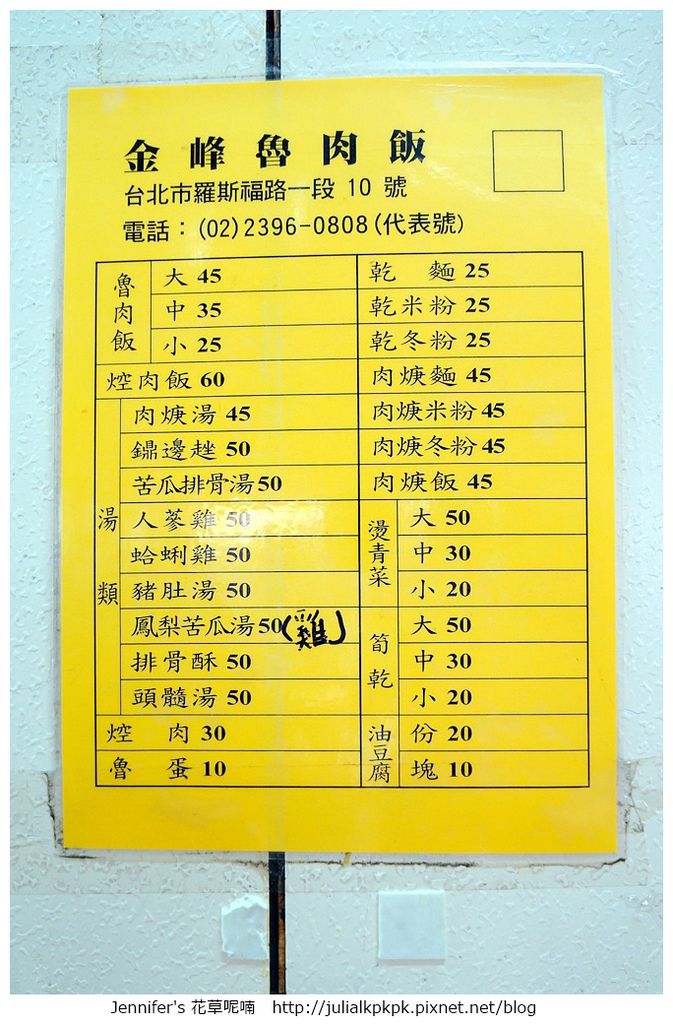 金峰魯肉飯
台北市羅斯福路一段 10 號
電話：(02)2396-0808(代表號)
魯肉飯
大 45
中 35
小 25
焢肉飯 60
湯類
肉焿湯 45
鍋邊趖 50
苦瓜排骨湯 50
人蔘雞 50
蛤蜊雞 50
豬肚湯 50
鳳梨苦瓜湯 50(雞)
排骨酥 50
頭髓湯 50
焢 肉 30
魯 蛋 10
乾 麵 25
乾米粉 25
乾冬粉 25
肉焿麵 45
肉焿米粉 45
肉焿冬粉 45
肉焿飯 45
燙青菜
大 50
中 30
小 20
筍乾
大 50
中 30
小 20
油豆腐
份 20
塊 10
Jennifer's 花草呢喃 http://julialkpkpk.pixnet.net/blog